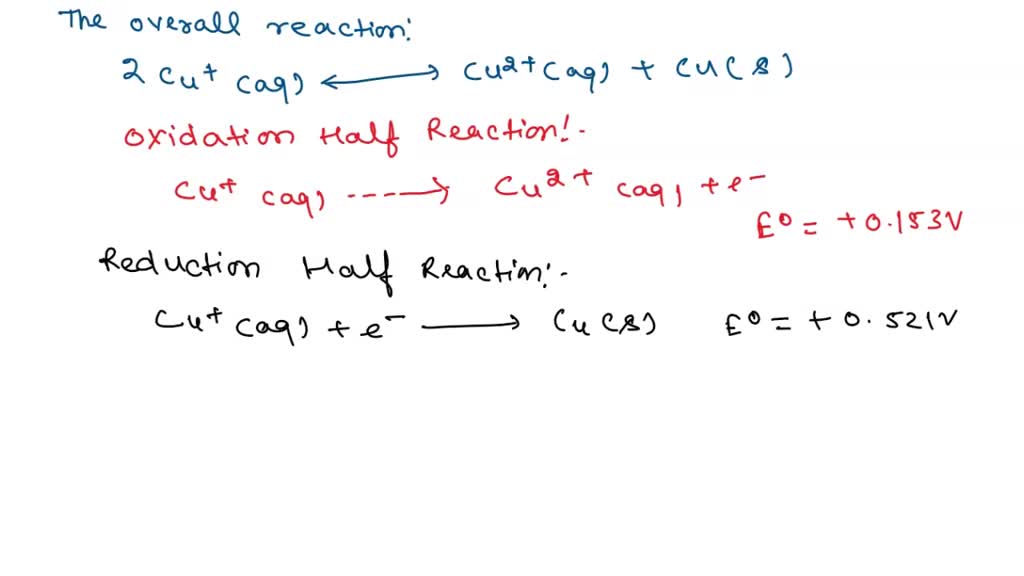 The overall reaction:
2 Cu+ (aq) ⟷ Cu2+ (aq) + Cu(s)
Oxidation Half Reaction:-
Cu+ (aq) ----> Cu2+ (aq) + e-
E0 = +0.153V
Reduction Half Reaction:-
Cu+ (aq) + e- ⟶ Cu(s) E0 = +0.521V